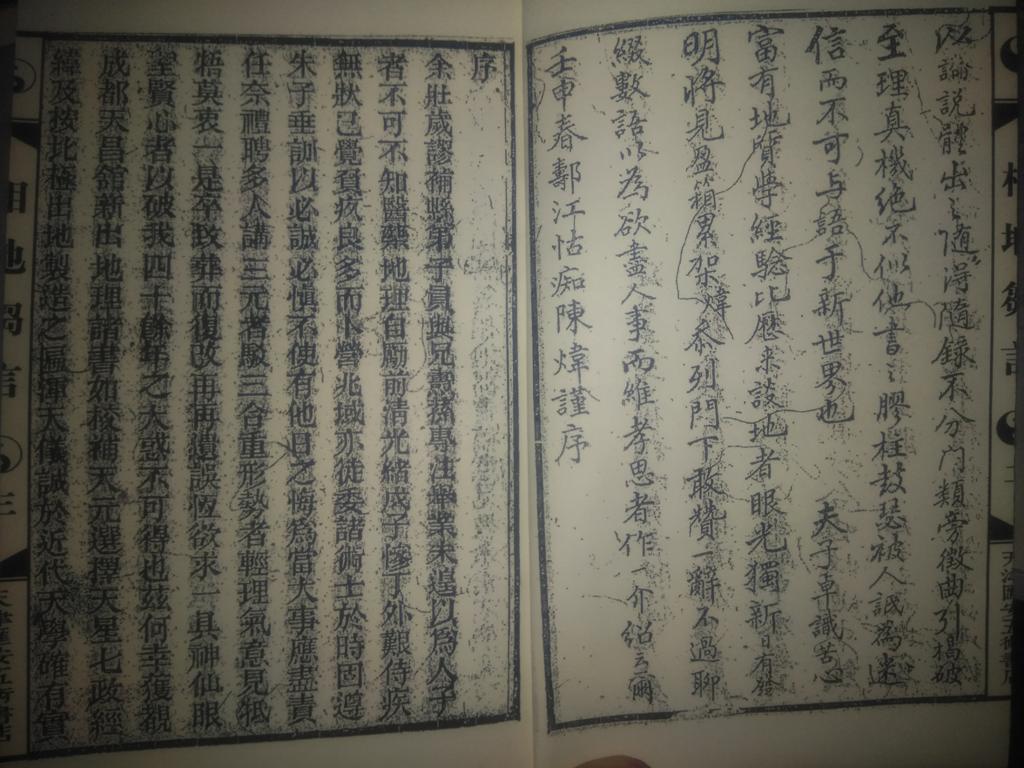 以論說體出之隨得隨錄不分門類旁徵曲引揭破
至理真機絕不似他書之膠柱鼓瑟被人誠為迷
信而不可与語于新世界也 夫子卓識苦心
富有地質學經驗比歷來談地者眼光獨新日有發
明將見盈箱累架煒忝列門下敢贊一辭不過聊
綴數語以為欲盡人事而維孝思者作一介紹云爾
壬申春鄞江怙痴陳煒謹序
序
余壯歲謬補縣弟子員與兄憲孫專注舉業未遑以為人子
者不可不知醫藥地理自勵前清光緒戊子慘丁外艱侍疾
無狀已覺負疚良多而卜營兆域亦徒委諸術士於時固遵
朱子垂訓以必誠必慎不使有他日之悔為當大事應盡責
任奈禮聘多人講三元者駁三合重形勢者輕理氣意見牴
牾莫衷一是卒致葬而復改再再遺誤恆欲求一具神仙眼
聖賢心者以破我四十餘年之大惑不可得也茲何幸獲覩
成都天昌館新出地理諸書如校補天元選擇天星七政經
緯及按北極出地製造之區渾天儀誠於近代天學確有實
相地芻言
三